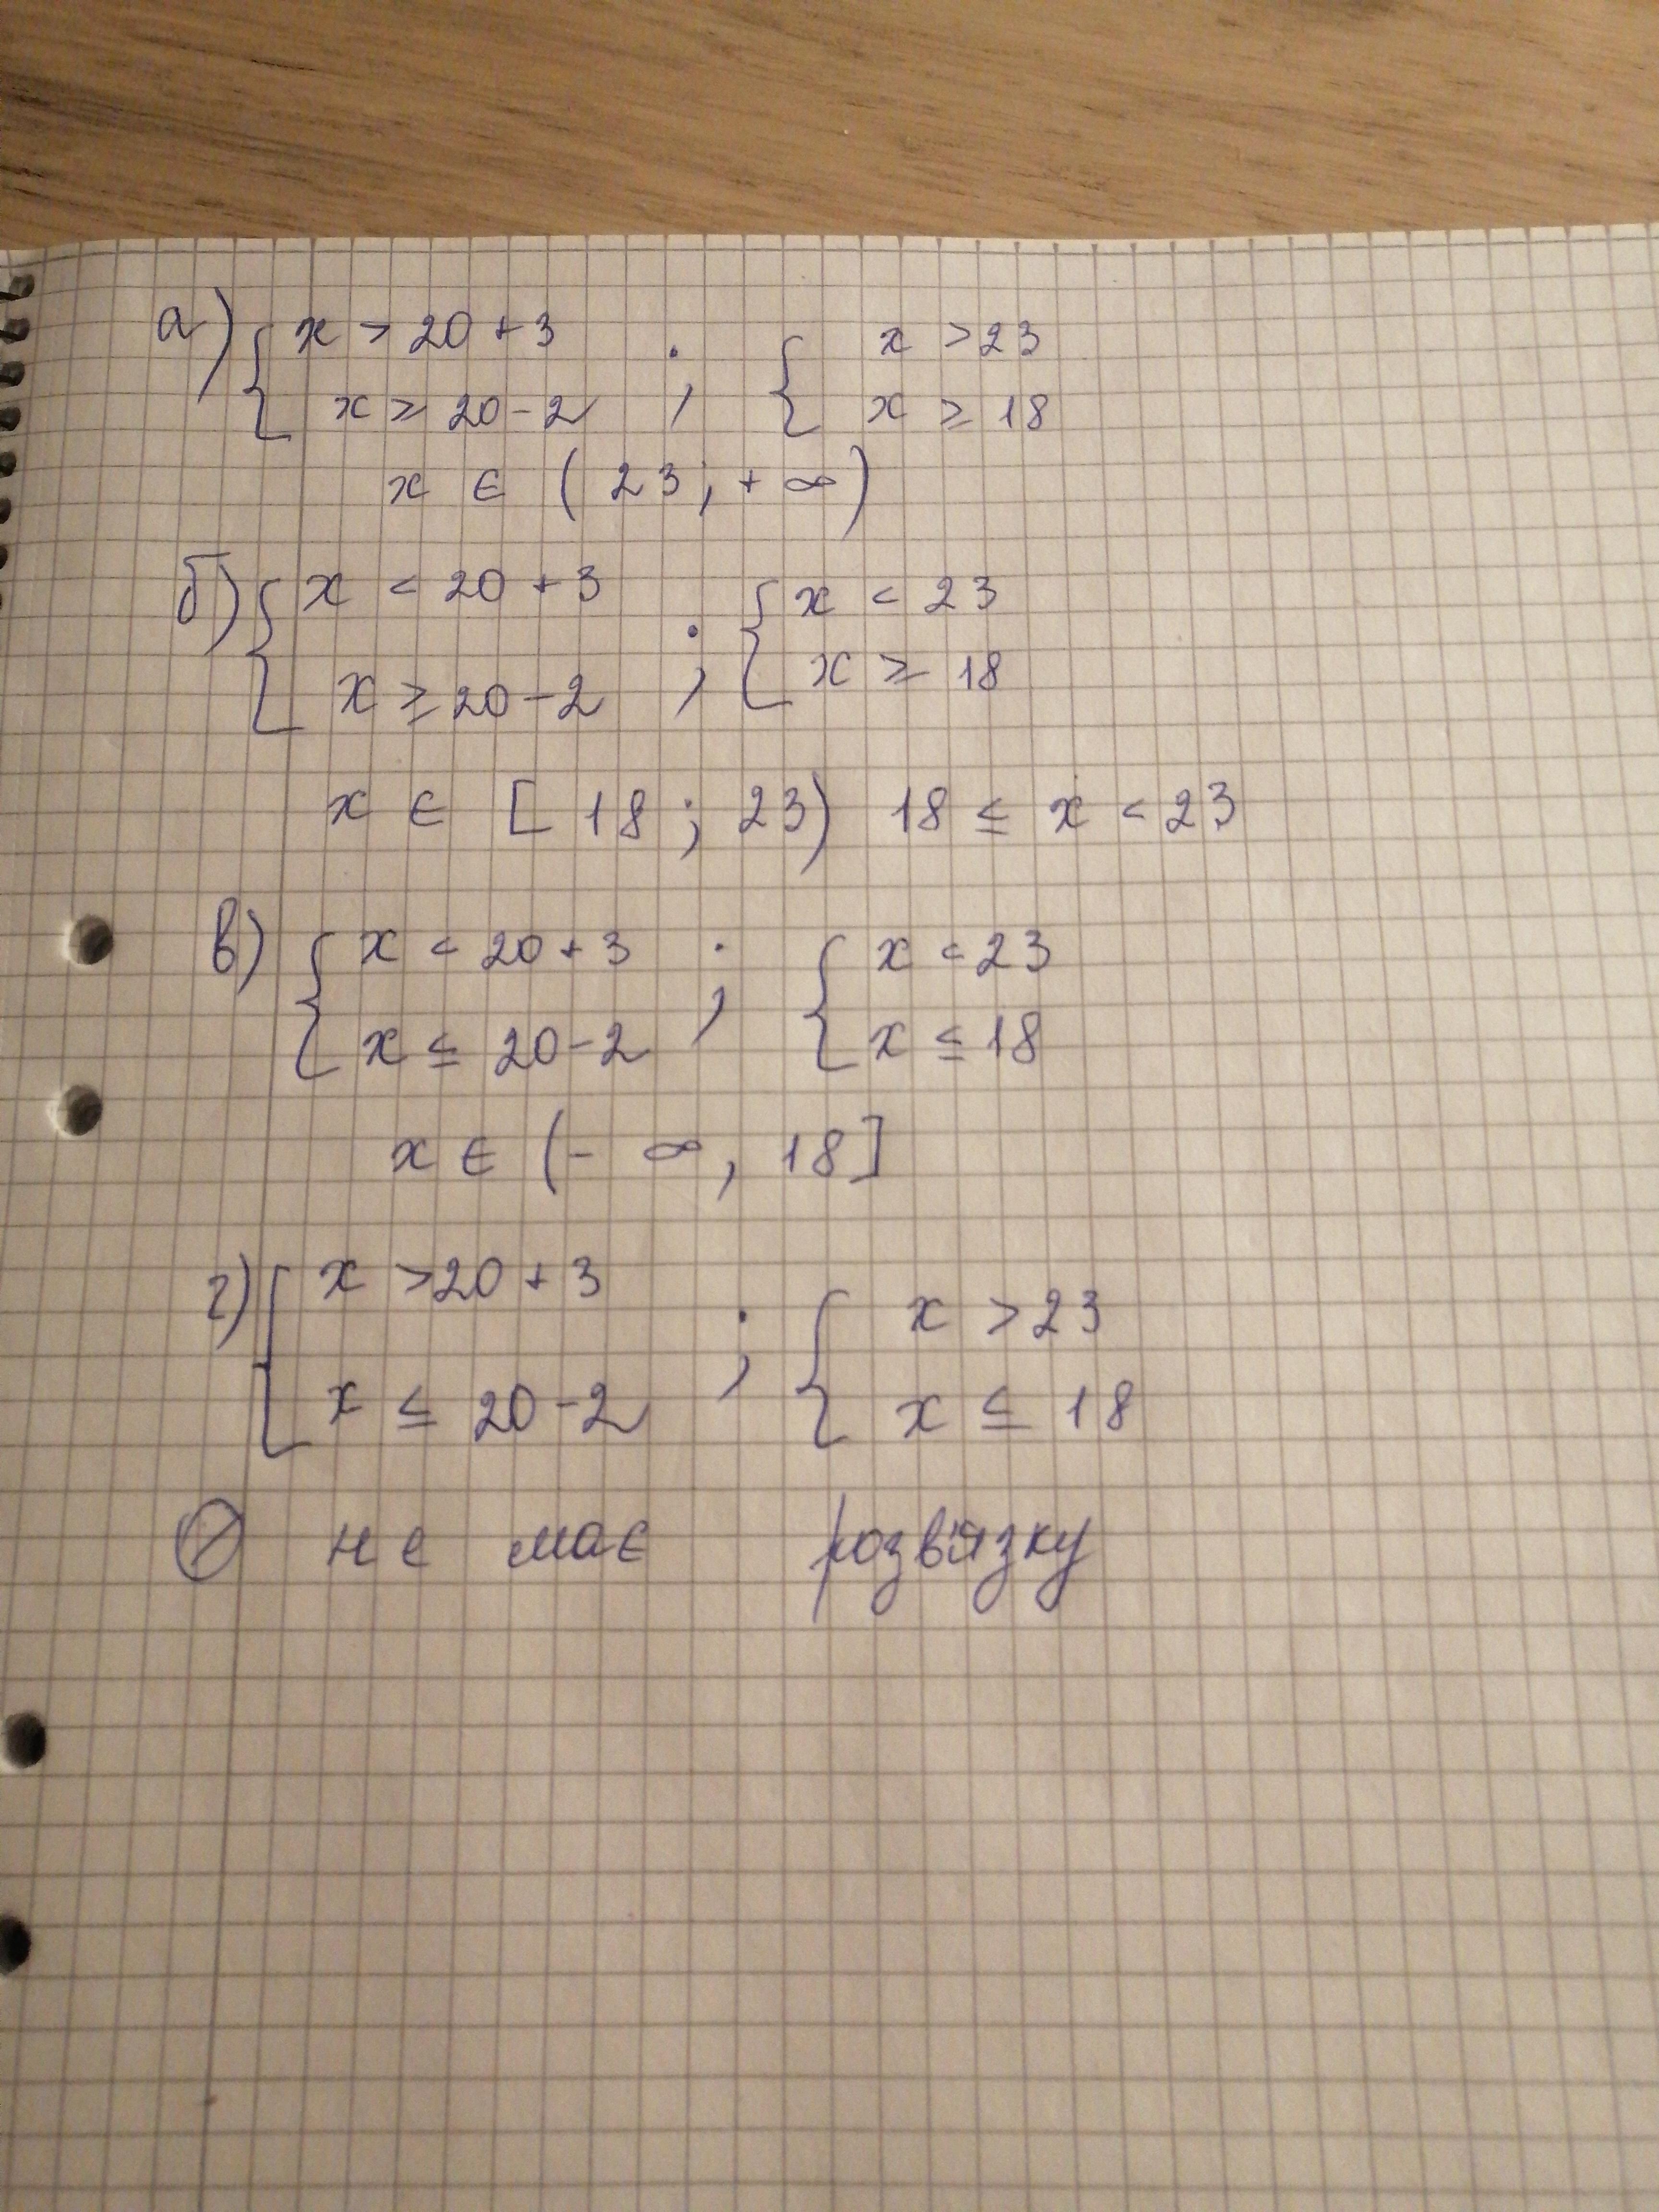 а) { x > 20 + 3 ; { x > 23
x ≥ 20 - 2 x ≥ 18
x ∈ ( 23 ; + ∞ )
б) { x < 20 + 3 ; { x < 23
x ≥ 20 - 2 x ≥ 18
x ∈ [ 18 ; 23 ) 18 ≤ x < 23
в) { x < 20 + 3 ; { x < 23
x ≤ 20 - 2 x ≤ 18
x ∈ ( - ∞ , 18 ]
г) { x > 20 + 3 ; { x > 23
x ≤ 20 - 2 x ≤ 18
∅ не має розв'язку